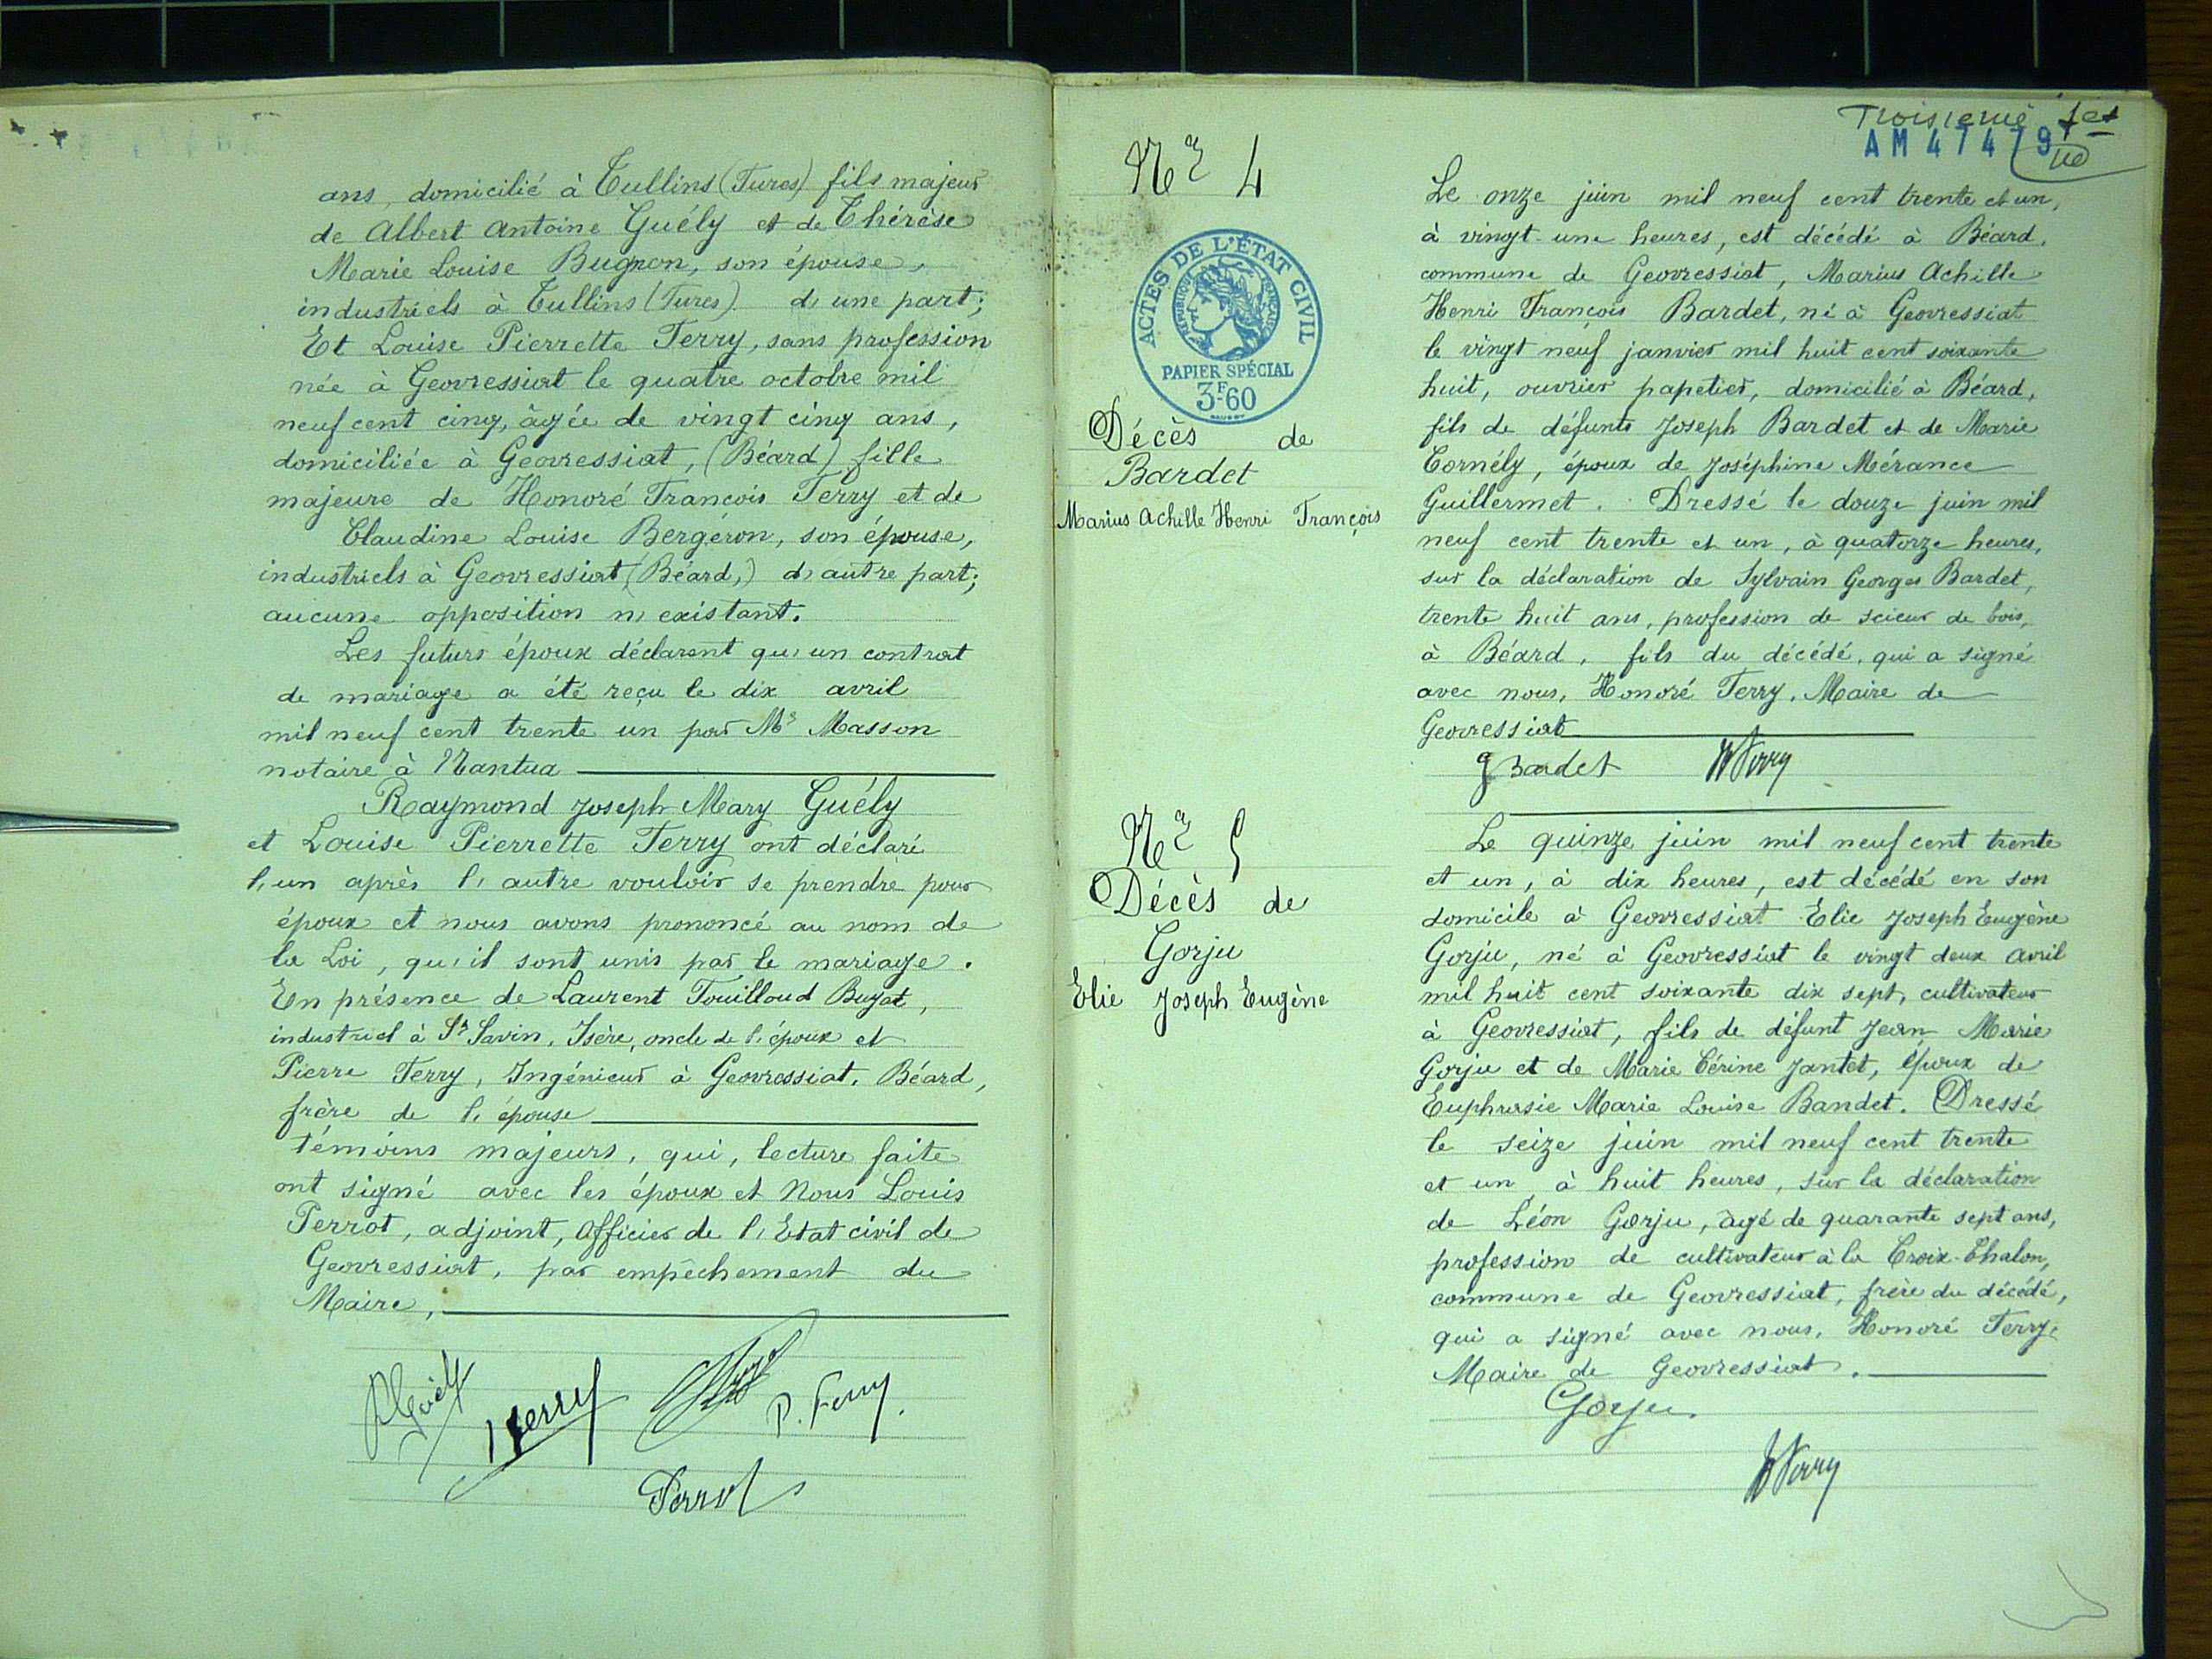 ans, domicilié à Tullins (Fures) fils majeur
de Albert Antoine Guély et de Thérèse
Marie Louise Bugnon, son épouse,
industriels à Tullins (Fures) d'une part;
Et Louise Pierrette Ferry, sans profession
née à Geovressiat le quatre octobre mil
neuf cent cinq, âgée de vingt cinq ans,
domiciliée à Geovressiat, (Béard) fille
majeure de Honoré François Ferry et de
Claudine Louise Bergeron, son épouse,
industriels à Geovressiat (Béard,) d'autre part;
aucune opposition n'existant.
Les futurs époux déclarent qu'un contrat
de mariage a été reçu le dix avril
mil neuf cent trente un par Me Masson
notaire à Nantua
Raymond Joseph Mary Guély
et Louise Pierrette Ferry ont déclaré
l'un après l'autre vouloir se prendre pour
époux et nous avons prononcé au nom de
la Loi, qu'il sont unis par le mariage.
En présence de Laurent Touilloud Buyat,
industriel à St Savin, Isère, oncle de l'époux et
Pierre Ferry, Ingénieur à Geovressiat, Béard,
frère de l'épouse
témoins majeurs, qui, lecture faite
ont signé avec les époux et Nous Louis
Perrot, adjoint, Officier de l'Etat civil de
Geovressiat, par empêchement du
Maire,
RGuély LFerry P. Ferry.
Perrot
Troisième
AM 47479
No 4
ACTES DE L'ÉTAT CIVIL
RÉPUBLIQUE FRANÇAISE
PAPIER SPÉCIAL
3F60
Décès de
Bardet
Marius Achille Henri François
Le onze juin mil neuf cent trente et un,
à vingt-une heures, est décédé à Béard,
commune de Geovressiat, Marius Achille
Henri François Bardet, né à Geovressiat
le vingt neuf janvier mil huit cent soixante
huit, ouvrier papetier, domicilié à Béard,
fils de défunts Joseph Bardet et de Marie
Cornély, époux de Joséphine Mérance
Guillermet. Dressé le douze juin mil
neuf cent trente et un, à quatorze heures,
sur la déclaration de Sylvain Georges Bardet,
trente huit ans, profession de scieur de bois,
à Béard, fils du décédé, qui a signé
avec nous, Honoré Ferry, Maire de
Geovressiat
g Bardet HFerry
No 5
Décès de
Gorju
Elie Joseph Eugène
Le quinze juin mil neuf cent trente
et un, à dix heures, est décédé en son
domicile à Geovressiat Elie Joseph Eugène
Gorju, né à Geovressiat le vingt deux avril
mil huit cent soixante dix sept, cultivateur
à Geovressiat, fils de défunt Jean Marie
Gorju et de Marie Cérine Jantet, époux de
Euphrasie Marie Louise Bandet. Dressé
le seize juin mil neuf cent trente
et un à huit heures, sur la déclaration
de Léon Gorju, âgé de quarante sept ans,
profession de cultivateur à la Croix-Chalon,
commune de Geovressiat, frère du décédé,
qui a signé avec nous, Honoré Ferry,
Maire de Geovressiat.
Gorju.
HFerry